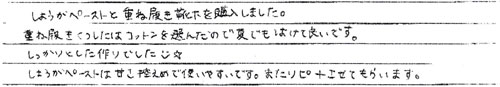 しょうがペーストと重ね履き靴下を購入しました。
重ね履きくつしたはコットンを選んだので夏でもはけて良いです。
しっかりとした作りでした☺☆
しょうがペーストは甘さ控えめで使いやすいです。またリピートさせてもらいます。